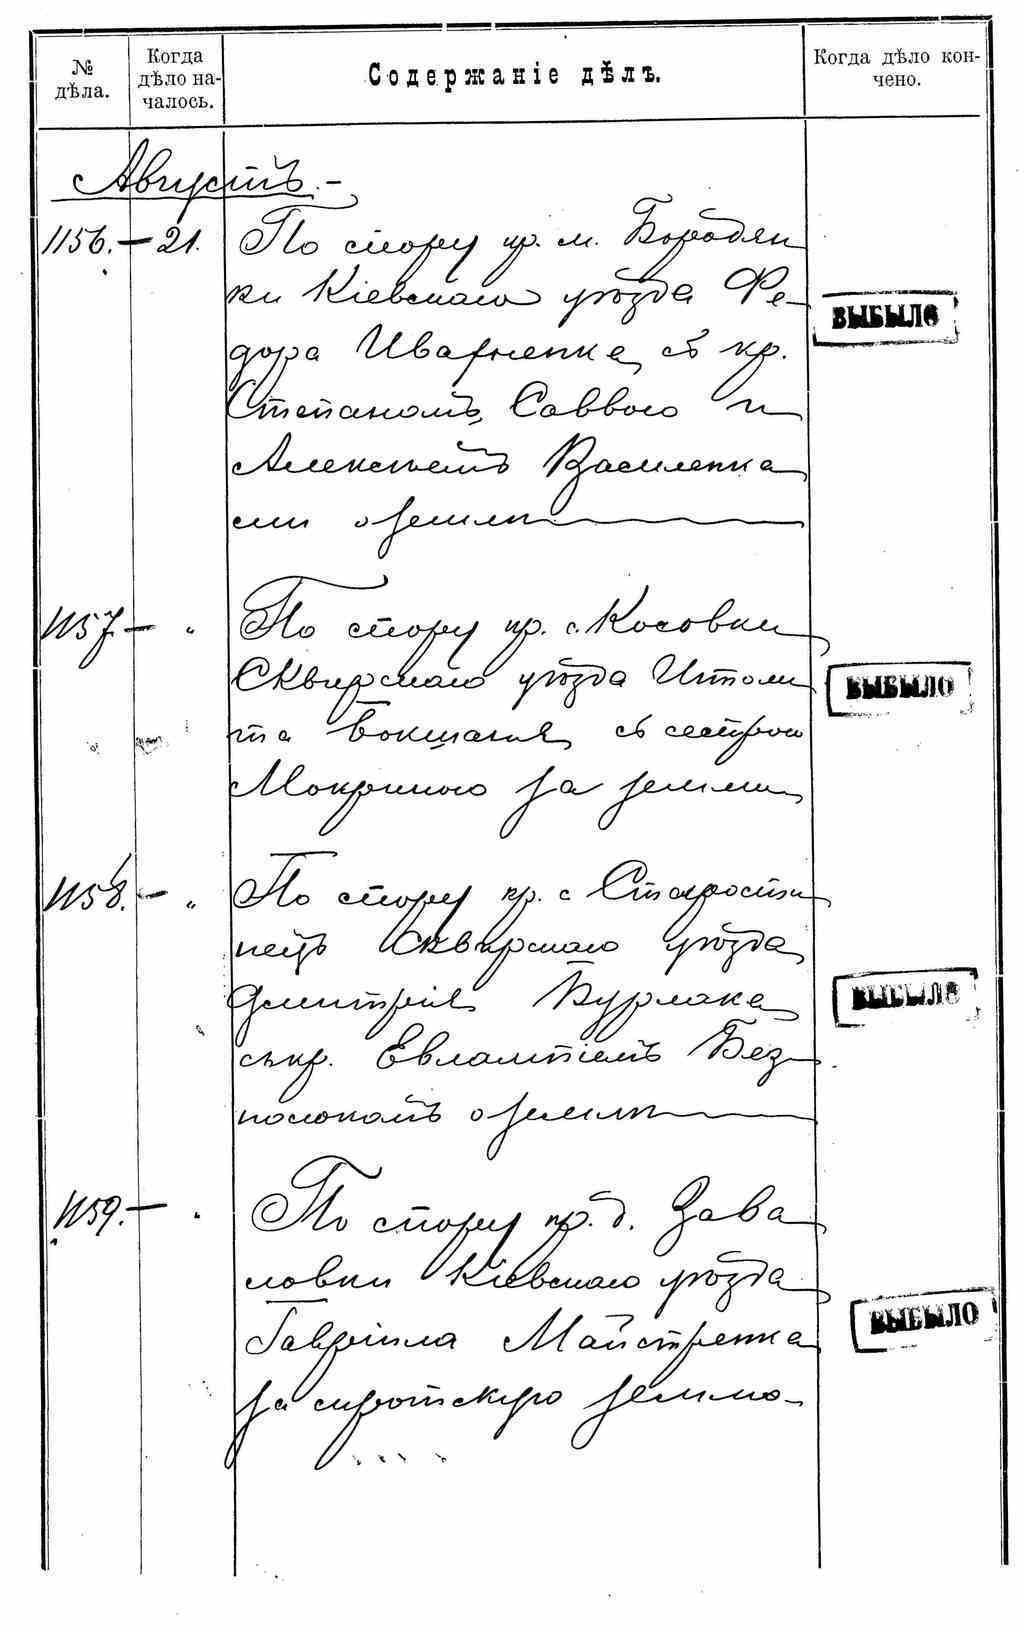 № дѣла.
Когда дѣло на-
чалось.
Содержаніе дѣлъ.
Когда дѣло кон-
чено.
Августъ.-
1156. — 21. По спору кр. м. Бородян
ки Кіевскаго уѣзда Ѳе-
дора Ивасненка съ кр.
Степаномъ, Саввою и
Алексѣемъ Василенка
ми о землѣ
ВЫБЫЛО
1157 — " По спору кр. с. Косовки
Сквирскаго уѣзда Иполи
та Бокшаня съ сестрою
Мокриною за земли
ВЫБЫЛО
1158. — " По спору кр. с Старости
нецъ Сквирскаго уѣзда
Дмитрія Бурлака
съ кр. Евлампіемъ Без
палюкомъ о землѣ
ВЫБЫЛО
1159. — " По спору кр. д. Зава
ловки Кіевскаго уѣзда
Гавріила Майстренка
за сиротскую землю-
ВЫБЫЛО